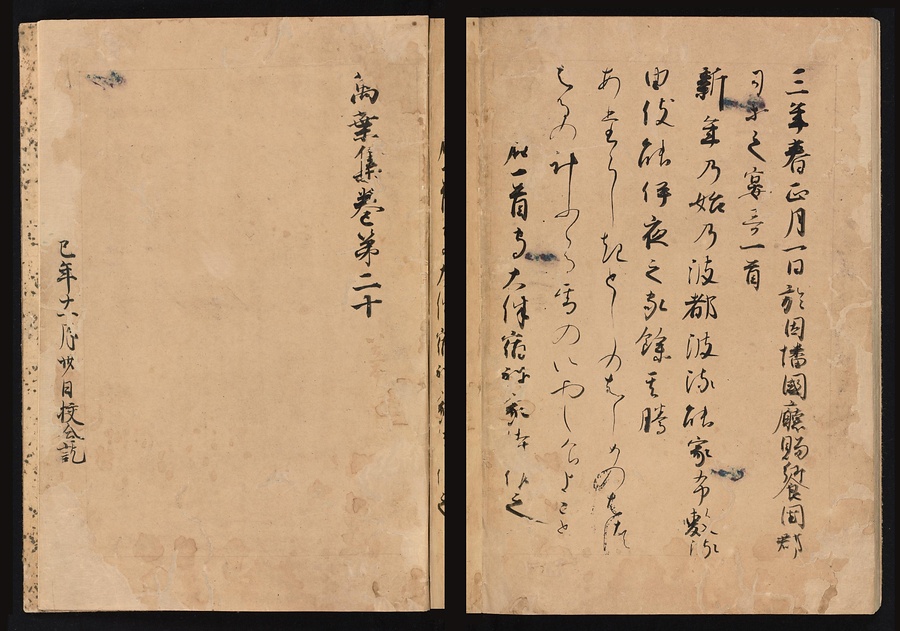 三年春正月一日於因幡國廳賜饗国郡
司等之宴哥一首
新年乃始乃波都波流能家布敷流
由伎能伊夜之家餘其騰
あたらしきとしのはしめのはつ
はるの計ふふる雪のいやしけよこと
右一首守大伴宿祢家持作之
萬葉集巻第二十
巳年 月 日校合訖